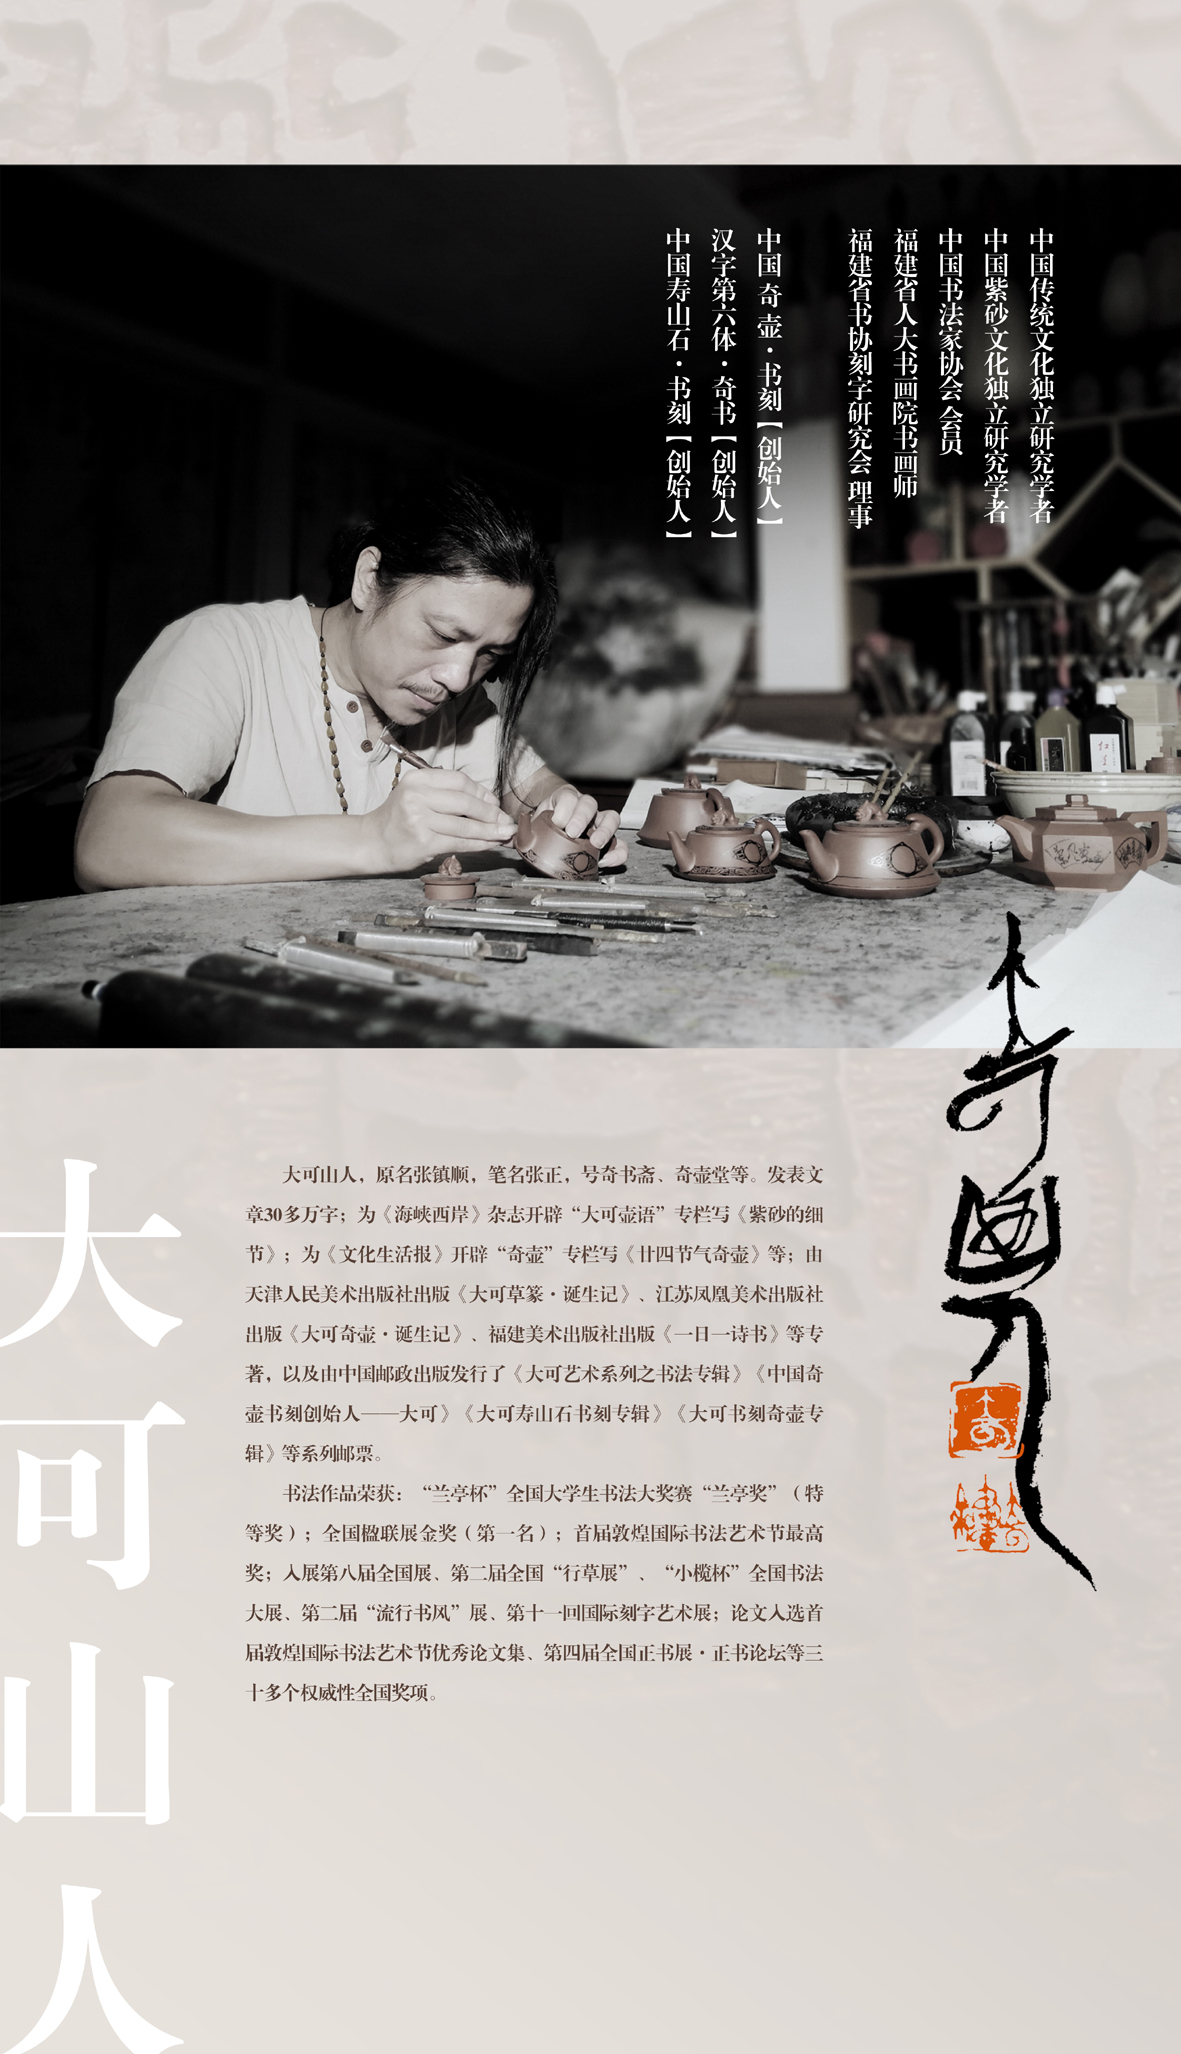 中国传统文化独立研究学者
中国紫砂文化独立研究学者
中国书法家协会 会员
福建省人大书画院书画师
福建省书协刻字研究会 理事
中国 奇 壶·书刻【创始人】
汉字第六体·奇书【创始人】
中国寿山石·书刻【创始人】
大可山人
大可山人，原名张镇顺，笔名张正，号奇书斋、奇壶堂等。发表文
章30多万字；为《海峡西岸》杂志开辟“大可壶语”专栏写《紫砂的细
节》；为《文化生活报》开辟“奇壶”专栏写《廿四节气奇壶》等；由
天津人民美术出版社出版《大可草篆·诞生记》、江苏凤凰美术出版社
出版《大可奇壶·诞生记》、福建美术出版社出版《一日一诗书》等专
著，以及由中国邮政出版发行了《大可艺术系列之书法专辑》《中国奇
壶书刻创始人——大可》《大可寿山石书刻专辑》《大可书刻奇壶专
辑》等系列邮票。
书法作品荣获：“兰亭杯”全国大学生书法大奖赛“兰亭奖”（特
等奖）；全国楹联展金奖（第一名）；首届敦煌国际书法艺术节最高
奖；入展第八届全国展、第二届全国“行草展”、“小榄杯”全国书法
大展、第二届“流行书风”展、第十一回国际刻字艺术展；论文入选首
届敦煌国际书法艺术节优秀论文集、第四届全国正书展·正书论坛等三
十多个权威性全国奖项。